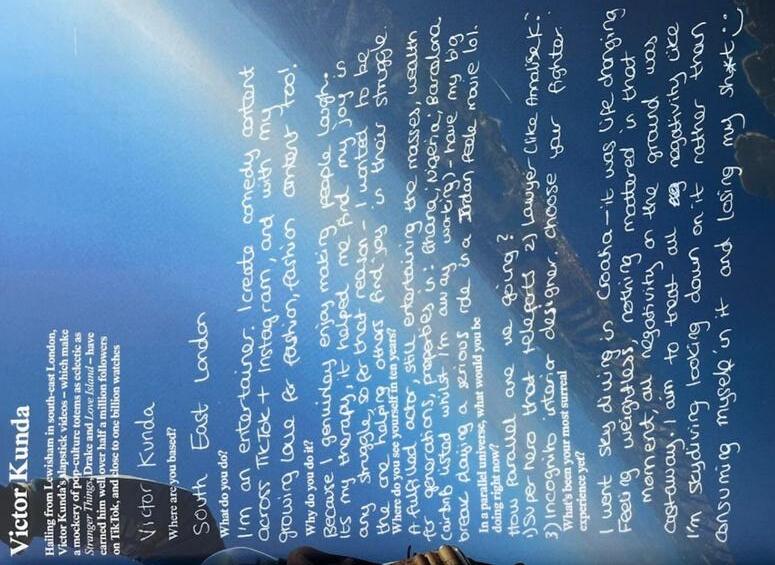 Victor Kunda
Hailing from Lewisham in south-east London,
Victor Kunda's slapstick videos – which make
a mockery of pop-culture totems as eclectic as
Stranger Things, Drake and Love Island – have
earned him well over half a million followers
on TikTok, and close to one billion watches
Victor Kunda
Where are you based?
South East London
What do you do?
I'm an entertainer. I create comedy content
across TikTok + Instagram, and with my
growing love for fashion, fashion content too!
Why do you do it?
Because I genuinley enjoy making people laugh.
It's my therapy, it helped me find my joy in
any struggle, so for that reason - I wanted to be
the one helping others find joy in their struggle.
Where do you see yourself in ten years?
A fulfilled actor, still entertaining the masses, wealth
for generations, properties in: Ghana, Nigeria, Barcelona
(airbnb listed whilst I'm away working) - have my big
break playing a serious role in a Jordan Peele movie lol.
In a parallel universe, what would you be
doing right now?
How parallel are we going?
1) Super hero that teleports 2) Lawyer (like Annalise K.)
3) Incognito interior designer, choose your fighter.
What's been your most surreal
experience yet?
I went sky diving in Croatia - it was life changing
Feeling weightless, nothing mattered in that
moment, all negativity on the ground was
castaway. I aim to treat all negativity like
I'm skydiving looking down on it rather than
consuming myself in it and losing my sh*t :)